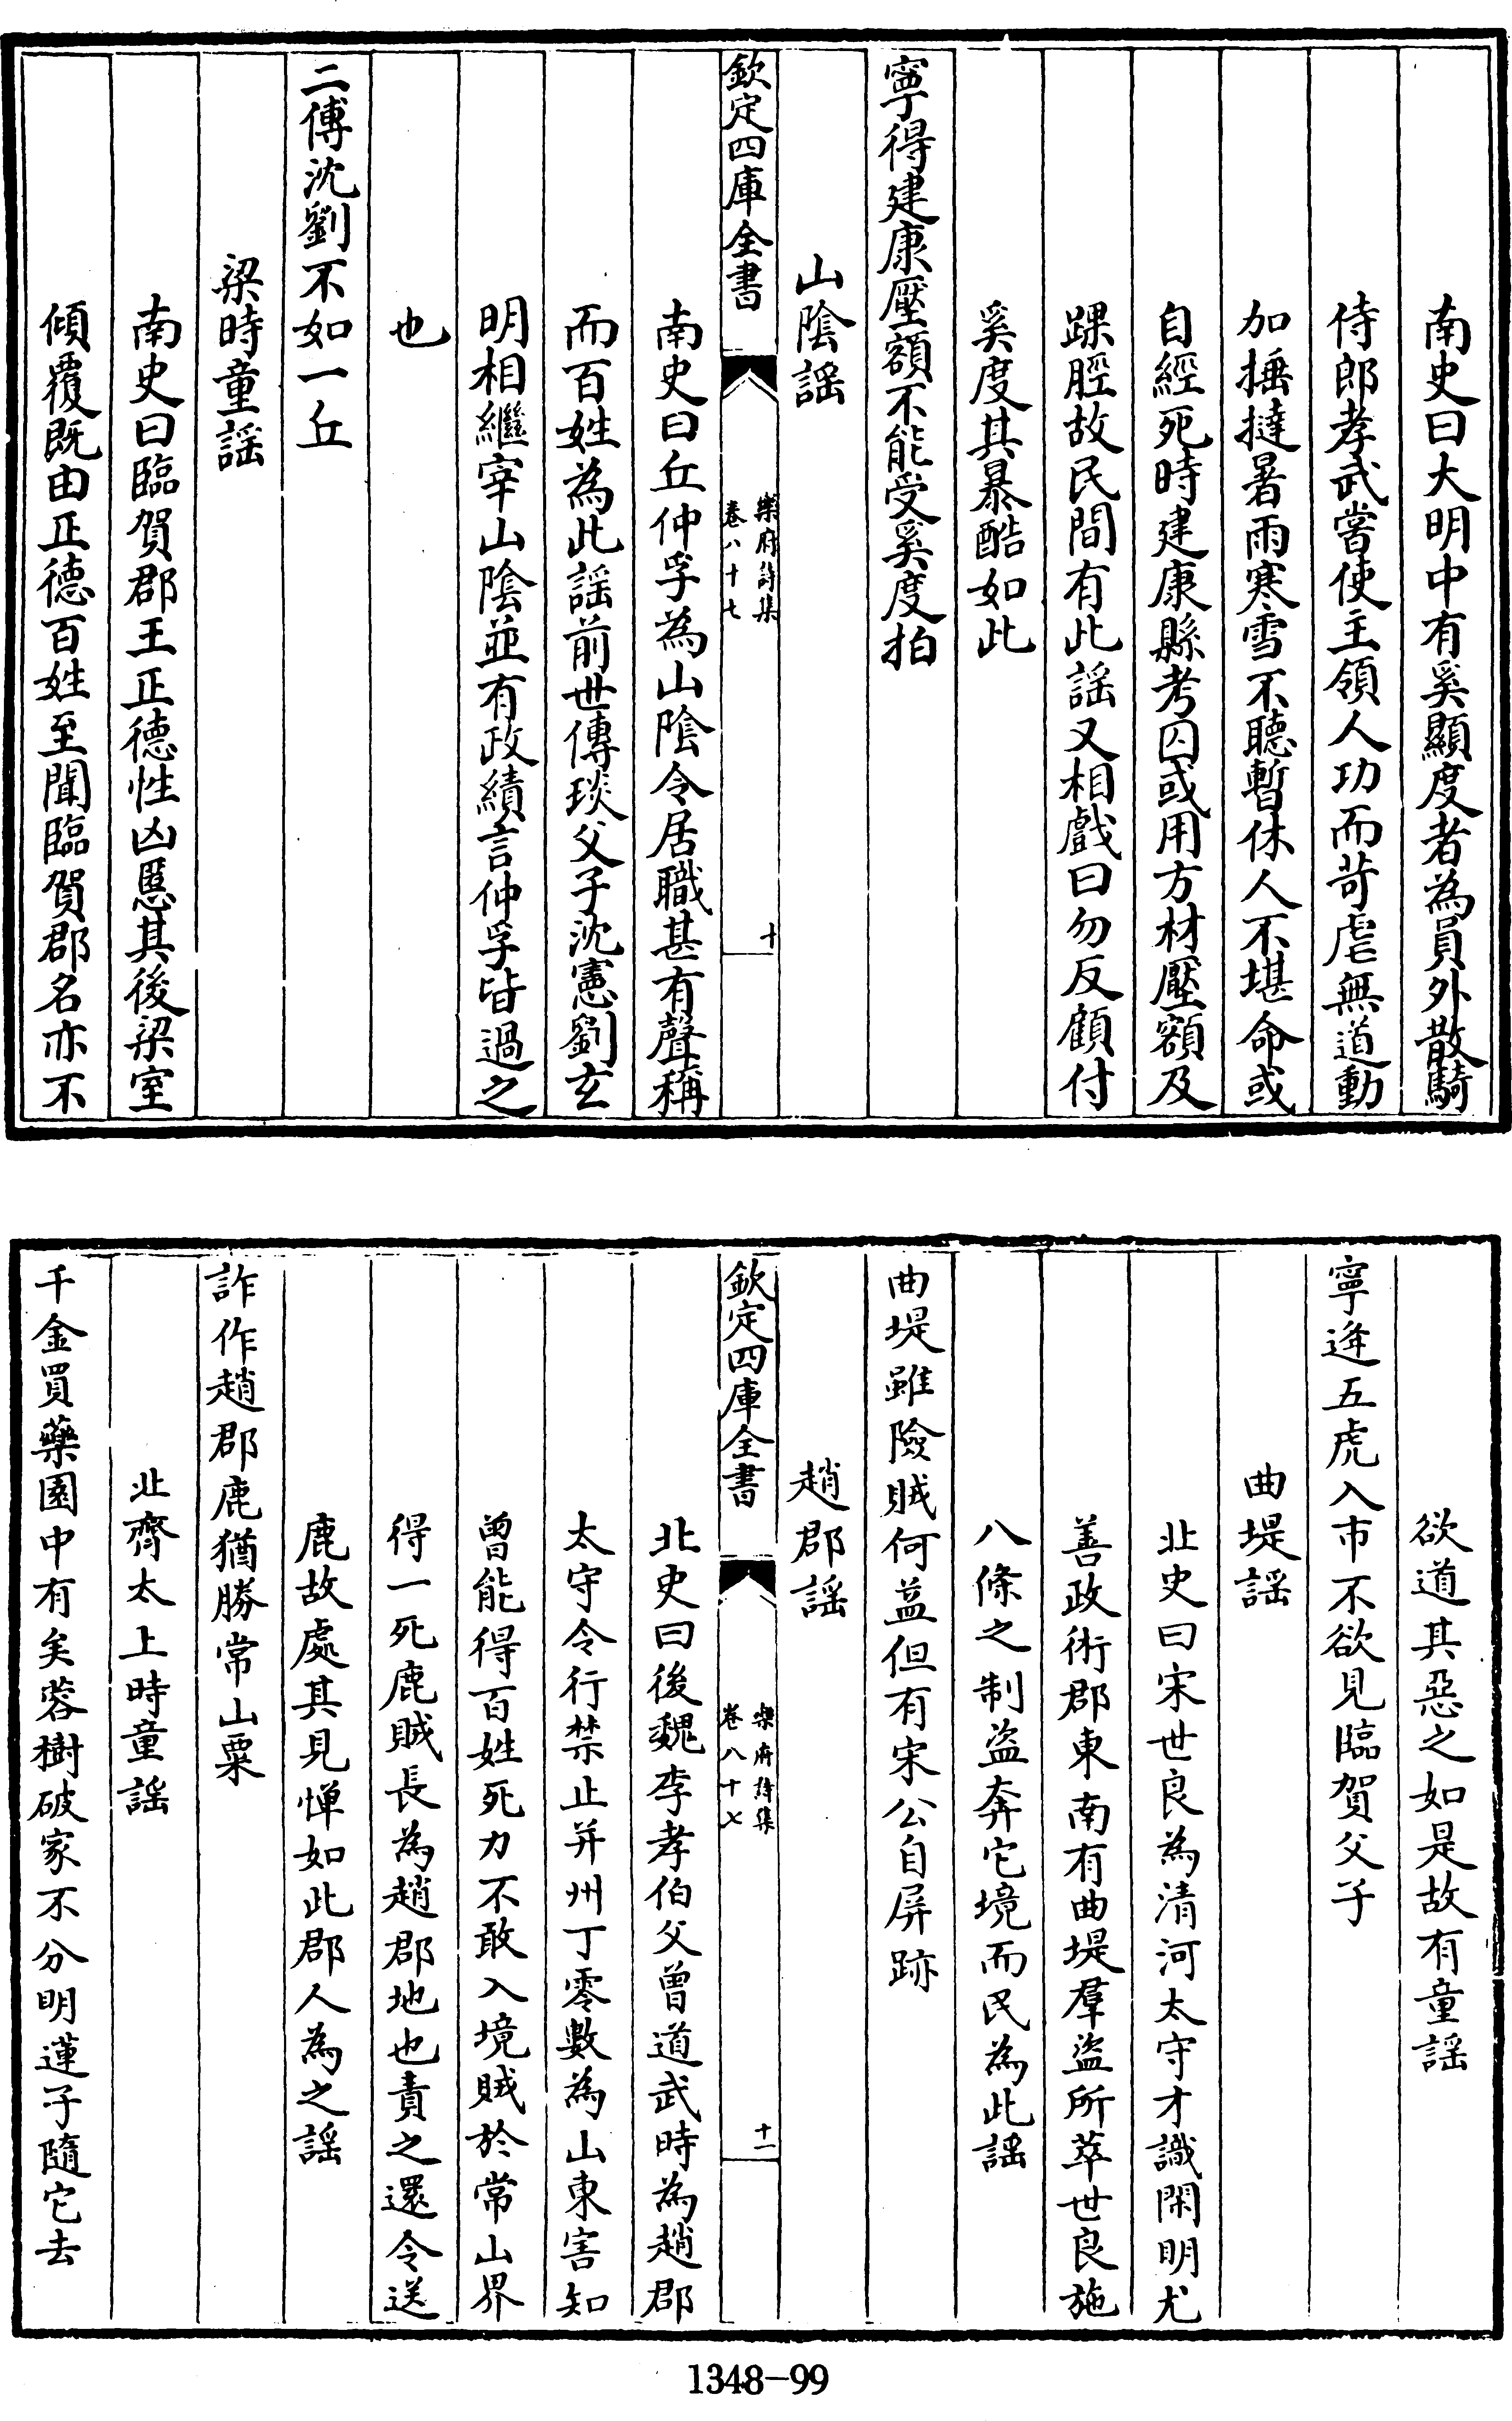 南史曰大明中有奚顯度者為員外散騎
侍郎孝武嘗使主領人功而苛虐無道動
加捶撻暑雨寒雪不聽暫休人不堪命或
自經死時建康縣考囚或用方材壓額及
踝脛故民間有此謡又相戲曰勿反顧付
奚度其暴酷如此
寧得建康壓額不能受奚度拍
山隂謡
欽定四庫全書
樂府詩集
卷八十七
十
南史曰丘仲孚為山隂令居職甚有聲稱
而百姓為此謡前世傳琰父子沈憲劉玄
明相繼宰山隂並有政績言仲孚皆過之
也
二傅沈劉不如一丘
梁時童謡
南史曰臨賀郡王正德性凶慝其後梁室
傾覆既由正德百姓至聞臨賀郡名亦不
欲道其惡之如是故有童謡
寧逄五虎入市不欲見臨賀父子
曲堤謡
北史曰宋世良為清河太守才識閑明尤
善政術郡東南有曲堤羣盜所萃世良施
八條之制盜奔它境而民為此謡
曲堤雖險賊何益但有宋公自屏跡
趙郡謡
欽定四庫全書
樂府詩集
卷八十七
十一
北史曰後魏李孝伯父曾道武時為趙郡
太守令行禁止并州丁零數為山東害知
曾能得百姓死力不敢入境賊於常山界
得一死鹿賊長為趙郡地也責之還令送
鹿故處其見憚如此郡人為之謡
詐作趙郡鹿猶勝常山粟
北齊太上時童謡
千金買藥園中有芙蓉樹破家不分明蓮子隨它去
1348-99